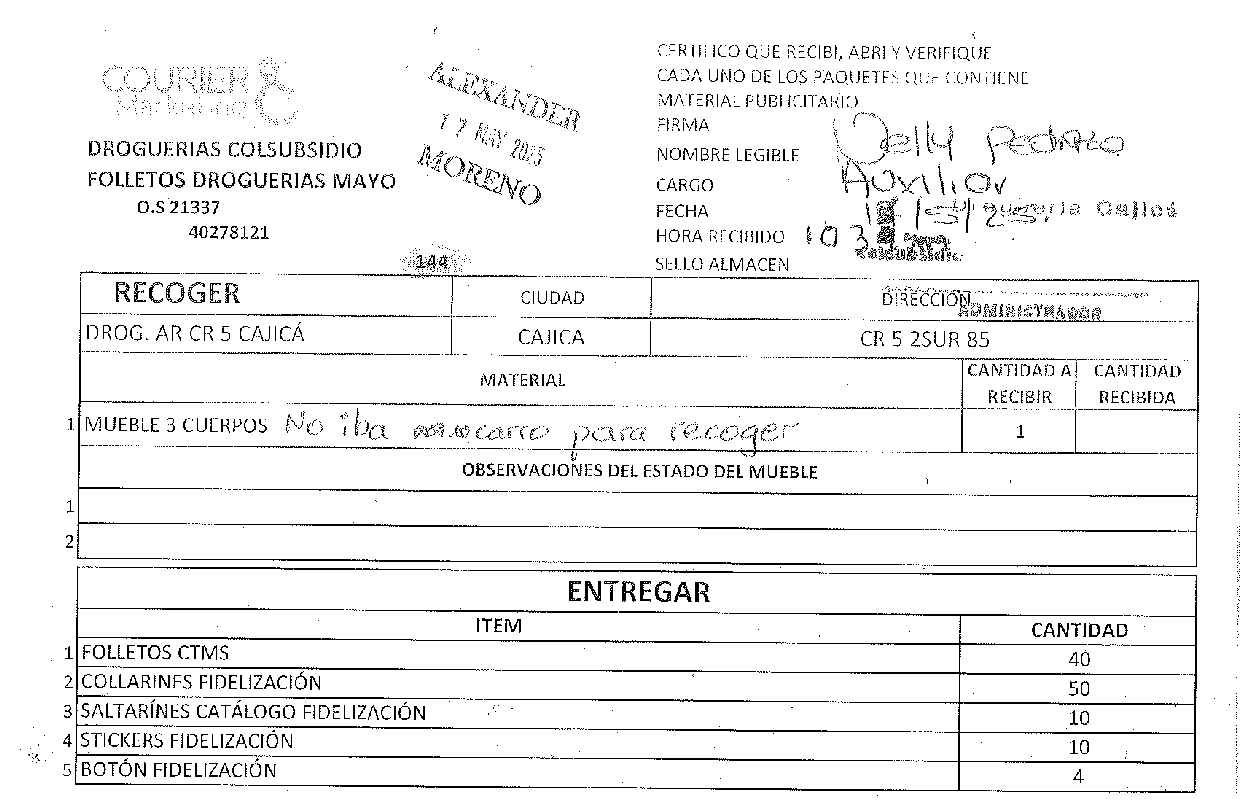 COURIER
Marketing
ALEXANDER
MAY 2025
MORENO
DROGUERIAS COLSUBSIDIO
FOLLETOS DROGUERIAS MAYO
O.S 21337
40278121
144
CERTIFICO QUE RECIBI, ABRI Y VERIFIQUE
CADA UNO DE LOS PAQUETES QUE CONTIENE
MATERIAL PUBLICITARIO
FIRMA
NOMBRE LEGIBLE
CARGO Auxiliar
FECHA
HORA RECIBIDO
SELLO ALMACEN
RECOGER CIUDAD DIRECCIÓN
ADMINISTRADOR
DROG. AR CR 5 CAJICÁ CAJICA CR 5 2SUR 85
MATERIAL CANTIDAD A RECIBIR CANTIDAD RECIBIDA
1 MUEBLE 3 CUERPOS No iba carro para recoger 1
OBSERVACIONES DEL ESTADO DEL MUEBLE
1
2
ENTREGAR
ITEM CANTIDAD
1 FOLLETOS CTMS 40
2 COLLARINES FIDELIZACIÓN 50
3 SALTARÍNES CATÁLOGO FIDELIZACIÓN 10
4 STICKERS FIDELIZACIÓN 10
5 BOTÓN FIDELIZACIÓN 4